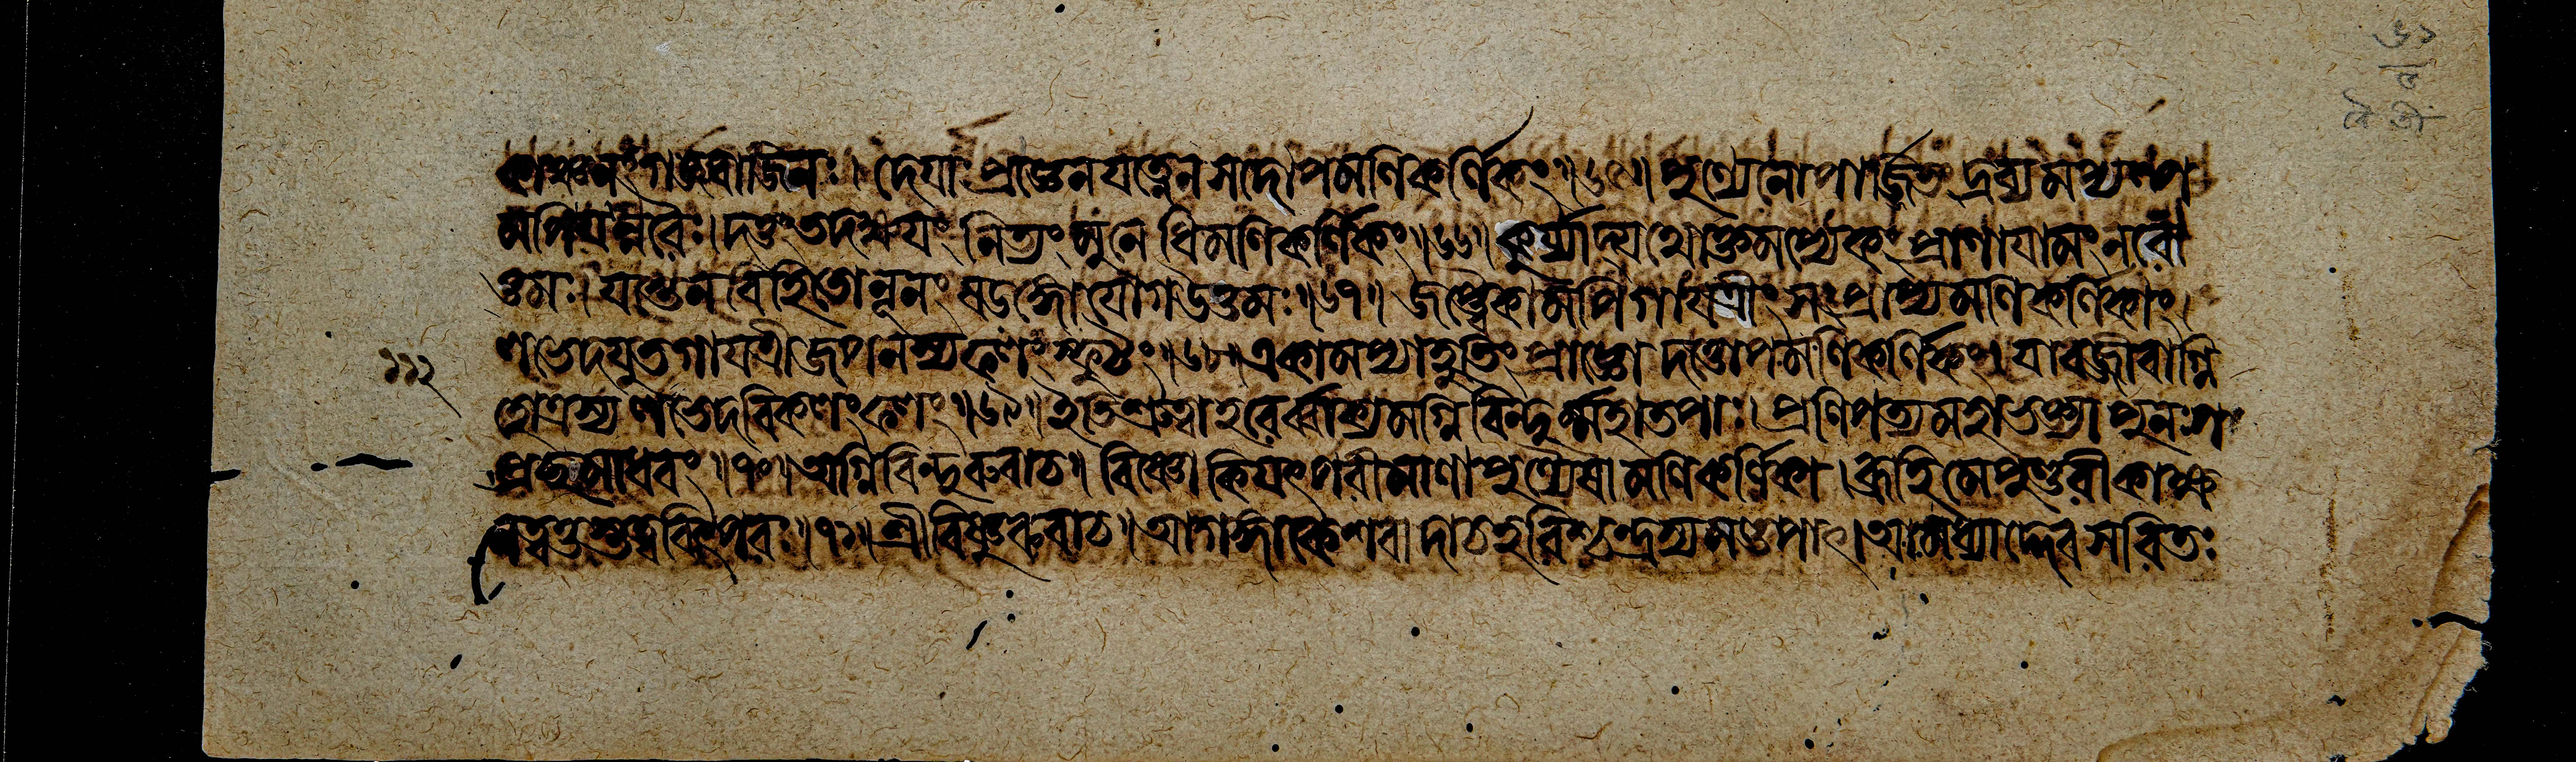 কাঞ্চনং গাশ্চ বাজিনঃ। দেযাঃ প্রাজ্ঞেন যত্নেন সদোপমণিকর্ণিকং॥৬৫॥ পুণ্যেনোপার্জ্জিতং দ্রব্যমপ্যল্প
মপি যন্নরৈঃ। দত্তং তদক্ষযং নিত্যং মুনে ধিমণিকর্ণিকং॥৬৬॥ কুর্য্যাদ্যথোক্তমপ্যেকং প্রাণাযামং নরো
ত্তমঃ। যস্তেন বিহিতো নূনং ষডঙ্গো যোগ উত্তমঃ॥৬৭॥ জপ্ত্বৈকামপি গাযত্রীং সংপ্রাপ্য মণিকর্ণিকাং।
লভেদযুতগাযত্রীজপনস্য ফলং স্ফুটং॥৬৮॥ একামপ্যাহুতিং প্রাজ্ঞো দত্ত্বোপমণিকর্ণিকং। যাবজ্জীবাগ্নি
হোত্রস্য লভেদবিকলং ফলং॥৬৯॥ ইতি শ্রুত্বা হরের্ব্বাক্যমগ্নিবিন্দুর্ম্মহাতপাঃ। প্রণিপত্য মহাভক্ত্যা পুনঃ প
প্রচ্ছ মাধবং॥৭০॥ অগ্নিবিন্দুরুবাচ॥ বিষ্ণো কিযৎপরীমাণা পুণ্যৈষা মণিকর্ণিকা। ব্রূহি মে পুণ্ডরীকাক্ষ
নত্বত্তস্তত্ত্ববিৎপরঃ॥৭১॥ শ্রীবিষ্ণুরুবাচ॥ আগঙ্গাকেশবাদাচ হরিশ্চন্দ্রস্য মণ্ডপাৎ। আমধ্যাদ্দেবসরিতঃ
১১২